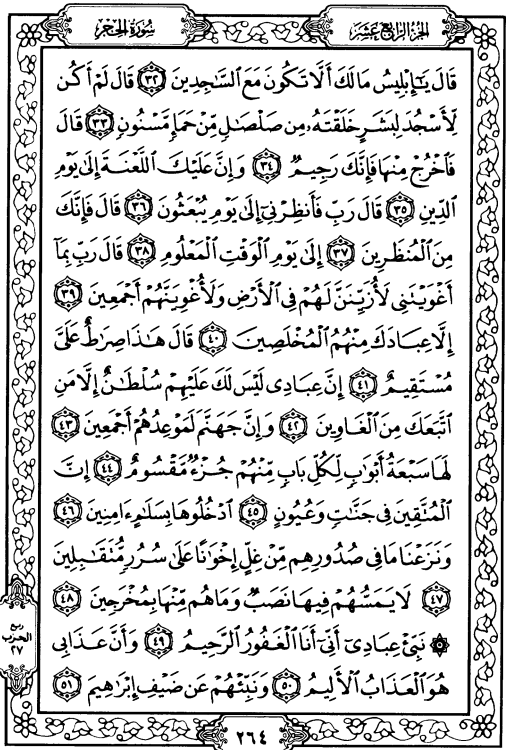 سُورَةُ الحِجْرِ
الجُزءُ الرَّابِعَ عَشَرَ
قَالَ يَٰٓإِبْلِيسُ مَالَكَ أَلَّا تَكُونَ مَعَ ٱلسَّٰجِدِينَ ٣٢ قَالَ لَمْ أَكُن
لِّأَسْجُدَ لِبَشَرٍ خَلَقْتَهُۥ مِن صَلْصَٰلٍ مِّنْ حَمَإٍ مَّسْنُونٍ ٣٣ قَالَ
فَٱخْرُجْ مِنْهَا فَإِنَّكَ رَجِيمٌ ٣٤ وَإِنَّ عَلَيْكَ ٱللَّعْنَةَ إِلَىٰ يَوْمِ
ٱلدِّينِ ٣٥ قَالَ رَبِّ فَأَنظِرْنِىٓ إِلَىٰ يَوْمِ يُبْعَثُونَ ٣٦ قَالَ فَإِنَّكَ
مِنَ ٱلْمُنظَرِينَ ٣٧ إِلَىٰ يَوْمِ ٱلْوَقْتِ ٱلْمَعْلُومِ ٣٨ قَالَ رَبِّ بِمَآ
أَغْوَيْتَنِى لَأُزَيِّنَنَّ لَهُمْ فِى ٱلْأَرْضِ وَلَأُغْوِيَنَّهُمْ أَجْمَعِينَ ٣٩
إِلَّا عِبَادَكَ مِنْهُمُ ٱلْمُخْلَصِينَ ٤٠ قَالَ هَٰذَا صِرَٰطٌ عَلَىَّ
مُسْتَقِيمٌ ٤١ إِنَّ عِبَادِى لَيْسَ لَكَ عَلَيْهِمْ سُلْطَٰنٌ إِلَّا مَنِ
ٱتَّبَعَكَ مِنَ ٱلْغَاوِينَ ٤٢ وَإِنَّ جَهَنَّمَ لَمَوْعِدُهُمْ أَجْمَعِينَ ٤٣
لَهَا سَبْعَةُ أَبْوَٰبٍ لِّكُلِّ بَابٍ مِّنْهُمْ جُزْءٌ مَّقْسُومٌ ٤٤ إِنَّ
ٱلْمُتَّقِينَ فِى جَنَّٰتٍ وَعُيُونٍ ٤٥ ٱدْخُلُوهَا بِسَلَٰمٍ ءَامِنِينَ ٤٦
وَنَزَعْنَا مَا فِى صُدُورِهِم مِّنْ غِلٍّ إِخْوَٰنًا عَلَىٰ سُرُرٍ مُّتَقَٰبِلِينَ
٤٧ لَا يَمَسُّهُمْ فِيهَا نَصَبٌ وَمَا هُم مِّنْهَا بِمُخْرَجِينَ ٤٨
۞ نَبِّئْ عِبَادِىٓ أَنِّىٓ أَنَا ٱلْغَفُورُ ٱلرَّحِيمُ ٤٩ وَأَنَّ عَذَابِى
هُوَ ٱلْعَذَابُ ٱلْأَلِيمُ ٥٠ وَنَبِّئْهُمْ عَن ضَيْفِ إِبْرَٰهِيمَ ٥١
ربع
الحزب
٢٧
٢٦٤